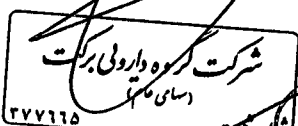 شرکت گروه دارویی برکت
(سهامی عام)
۳۷۷۶۶۵